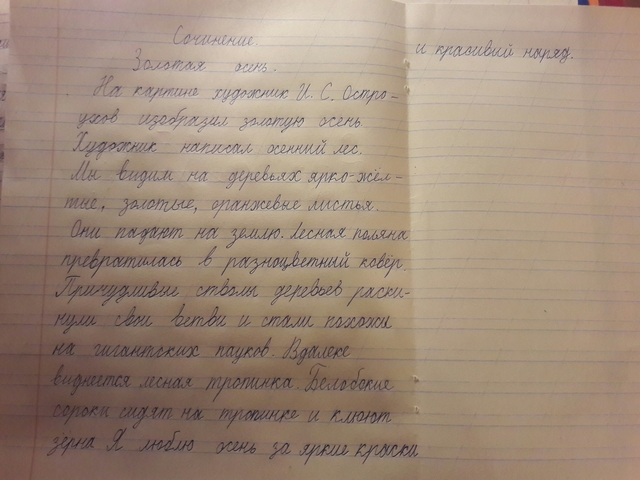 Сочинение.
Золотая осень.
На картине художник И. С. Остро-
ухов изобразил золотую осень
Художник написал осенний лес.
Мы видим на деревьях ярко-жёл-
тые, золотые, оранжевые листья.
Они падают на землю. Лесная поляна
превратилась в разноцветный ковёр.
Причудливые стволы деревьев раски-
нули свои ветви и стали похожи
на гигантских пауков. Вдалеке
виднеется лесная тропинка. Белобокие
сороки сидят на тропинке и клюют
зёрна Я люблю осень за яркие краски
и красивий няряд.